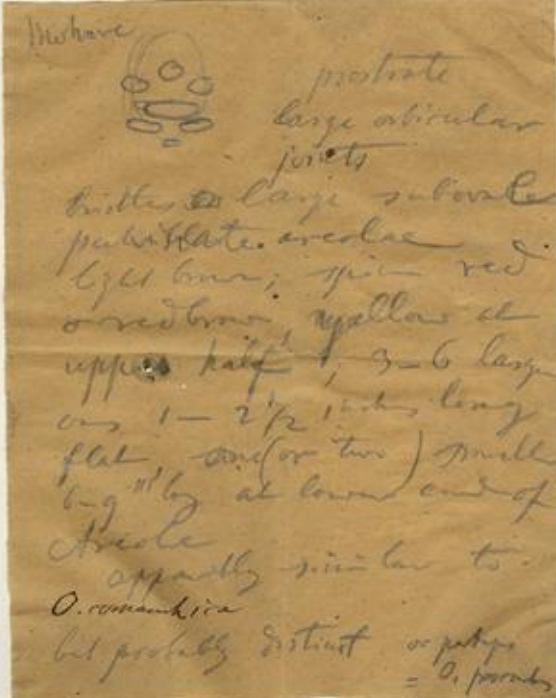 Mohave
prostrate
large orbicular
joints
bristles large subovate
pulvillate areolae
light brown; spin red
or redbrown, yellow at
upper half, 3–6 large
ones 1 – 2 1/2 inches long
flat, one (or two) smaller
6–9''' lg at lower end of
Areole
appardly similar to
O. comanchica
but probably distinct or perhaps
= O.